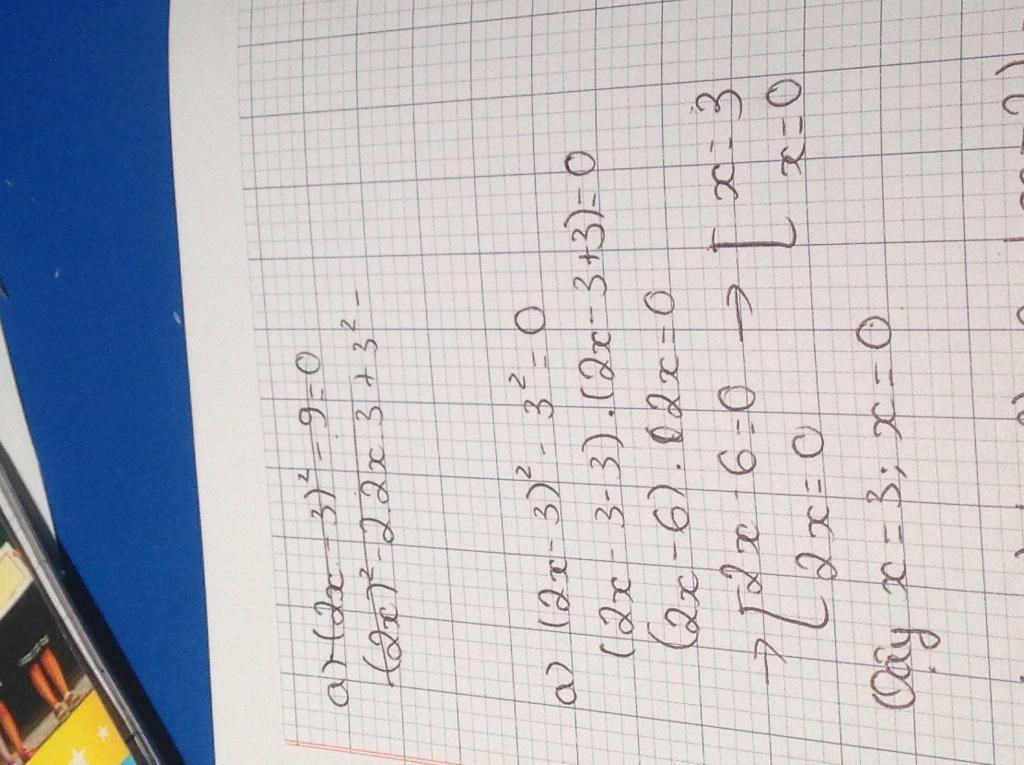 a) (2x - 3)² - 9 = 0
(2x)² - 2 2x 3 + 3² -
a) (2x - 3)² - 3² = 0
(2x - 3 - 3) . (2x - 3 + 3) = 0
(2x - 6) . 2x = 0
→ [ 2x - 6 = 0 → [ x = 3
2x = 0 x = 0
Vậy x = 3 ; x = 0